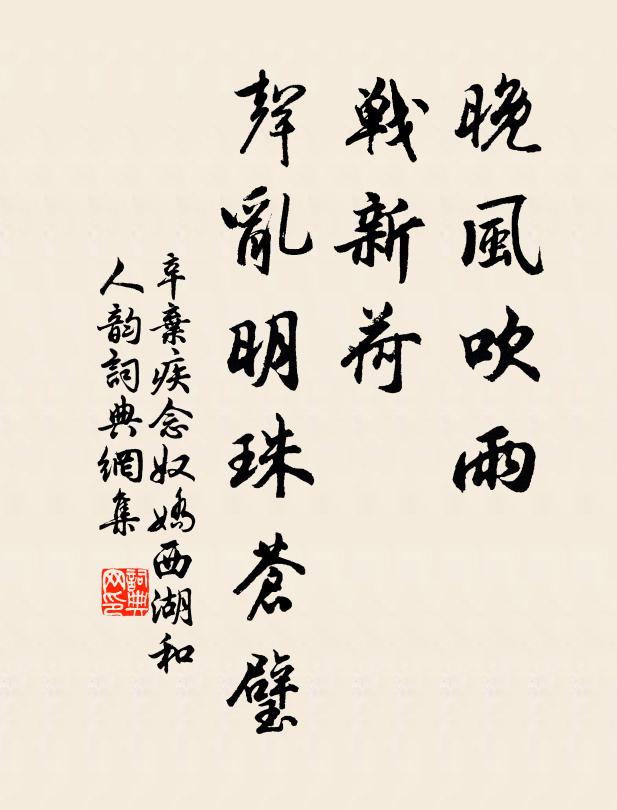 晚風吹雨
戰新荷
聲亂明珠蒼璧
辛棄疾念奴嬌西湖和
人韵詞典網集
詞典
网印